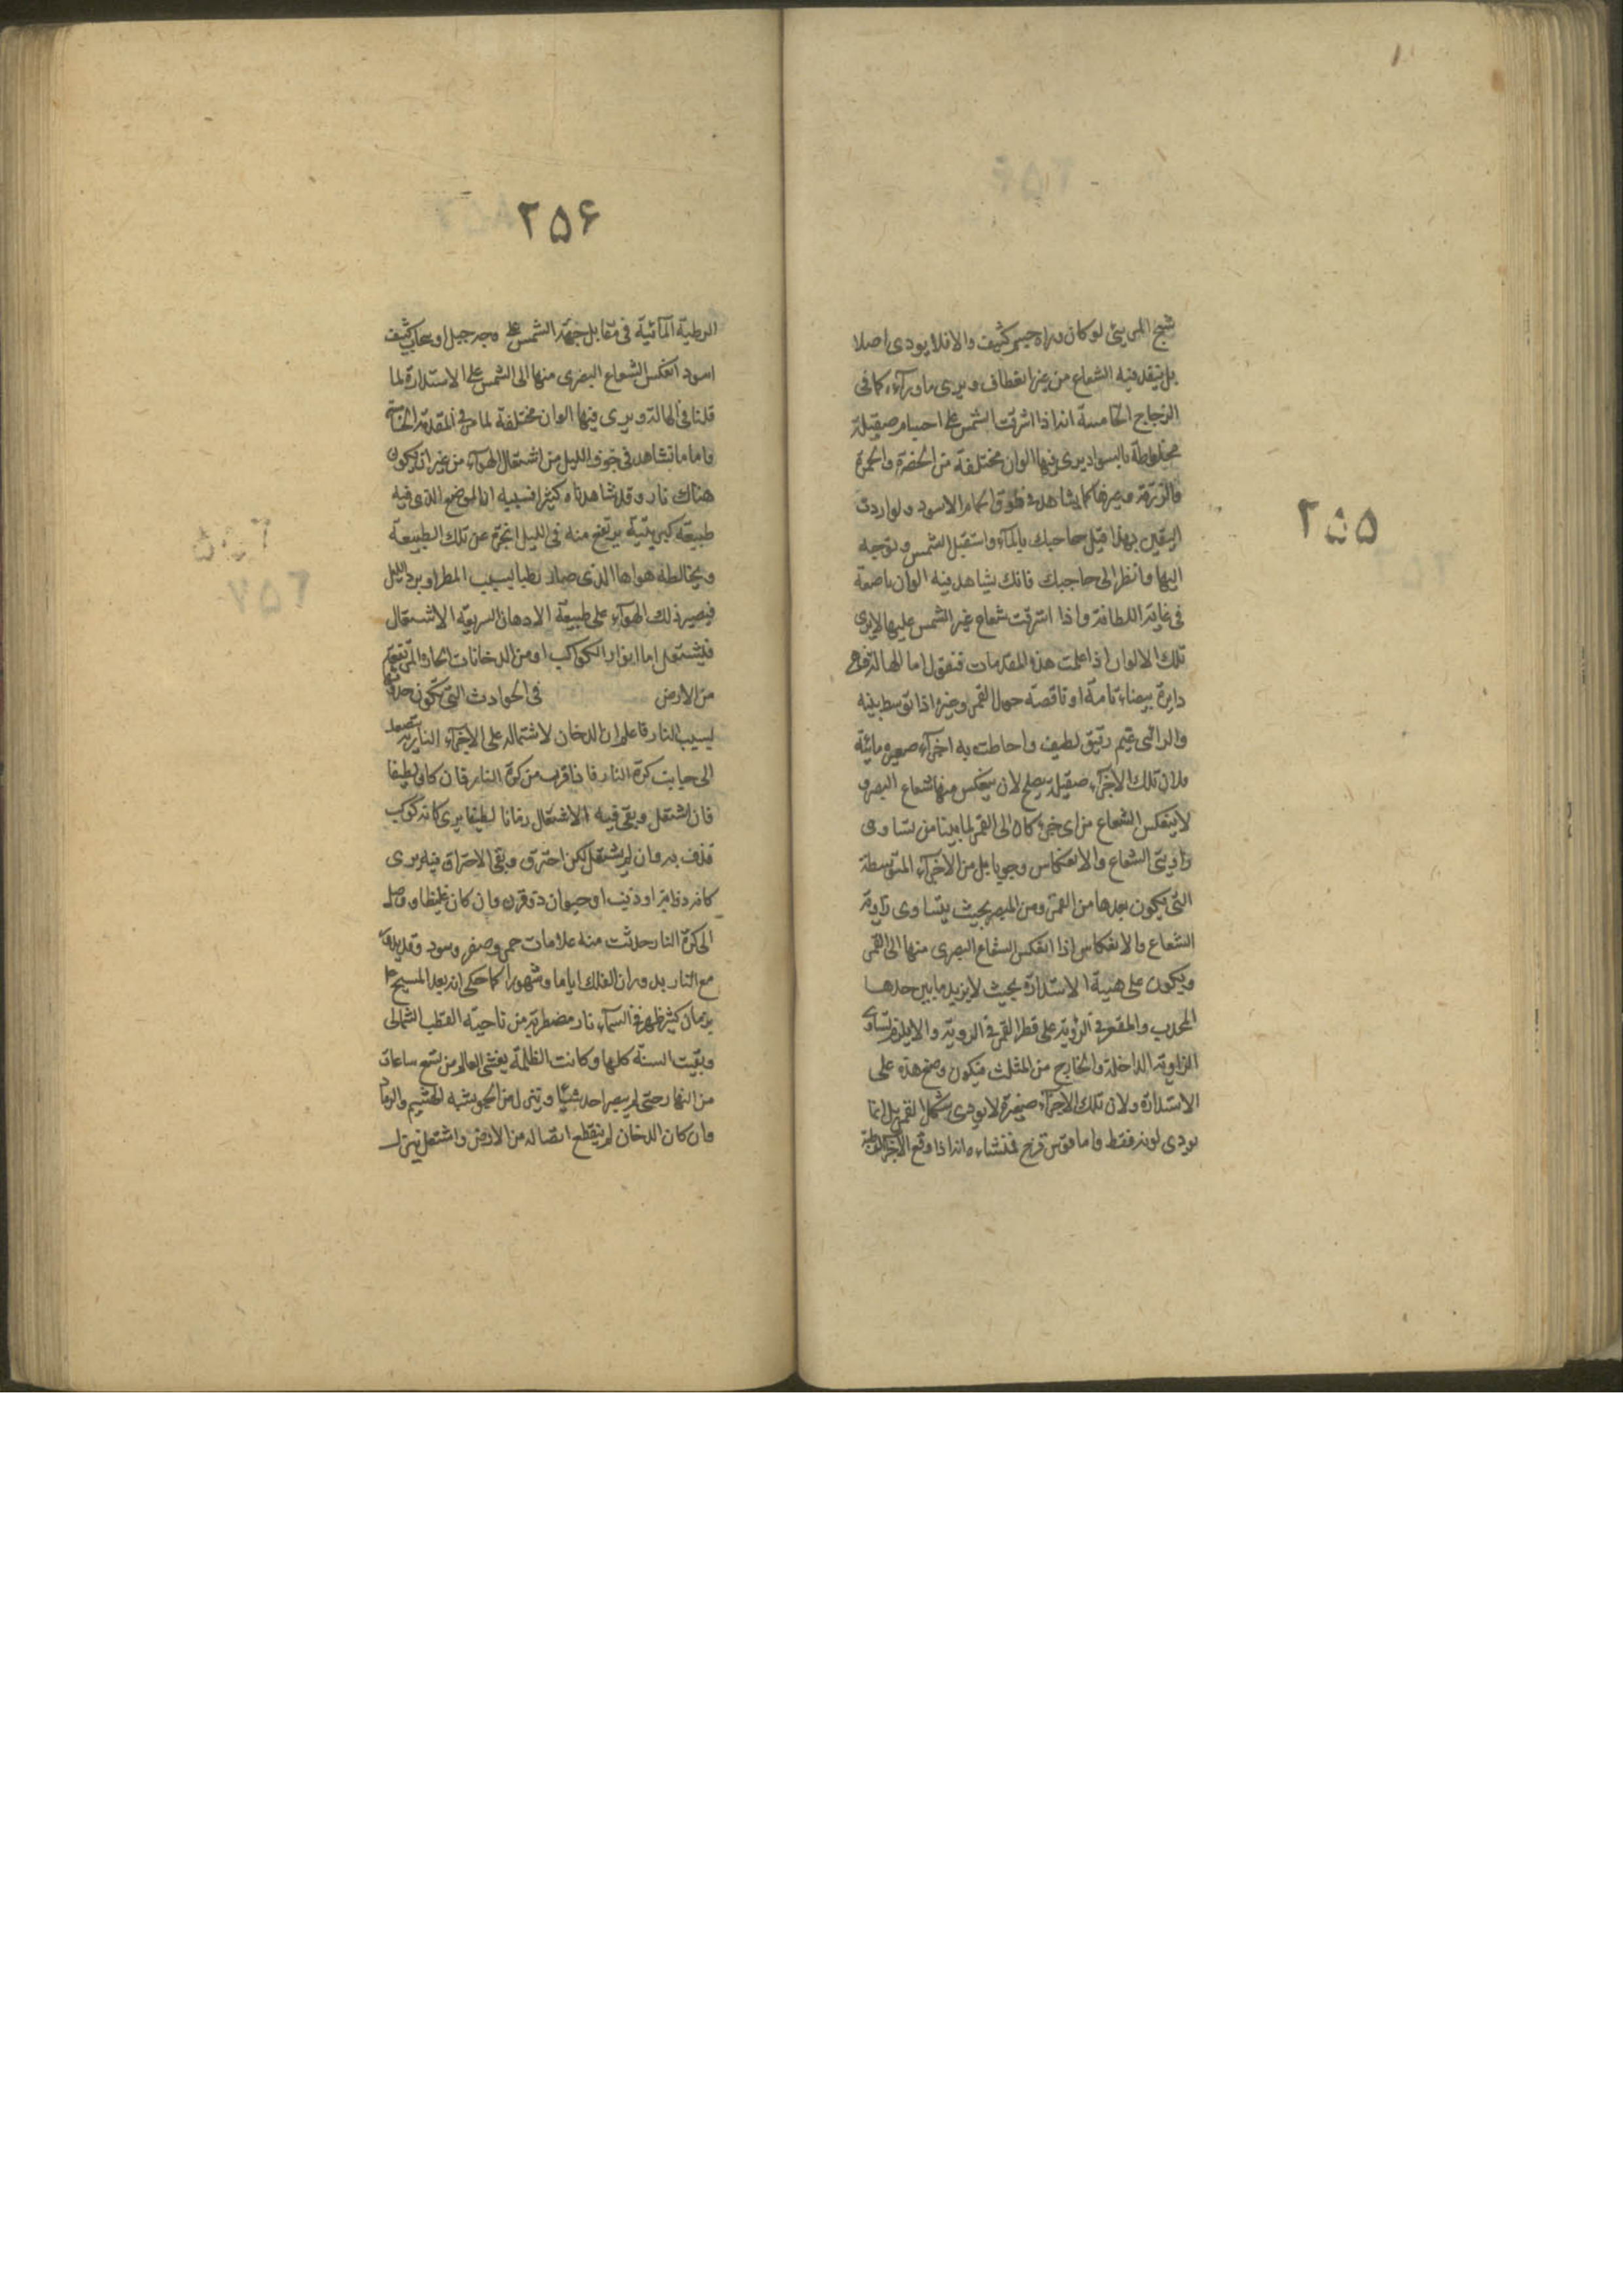 ٢٥٥
شبح المرئي لو كان وراه جسم كثيف والا فلا يودى اصلا
بل ينفد فيه الشعاع من غير انعطاف ويرى ما ورآءه كما فى
الزجاج الخامسة انه اذا اشرقت الشمس على اجسام صيقيلة
مخلوطة بالسواد يرى فيها الوان مختلفة من الخضرة والحمرة
والزرقة وغيرها كما يشاهد فى طوق الحمام الاسود ولو اردت
اليقين بهذا فبل حاجبك بالمآء واستقبل الشمس وتوجه
اليها وانظر الى حاجبك فانك يشاهد فيه الوان ناصعة
فى غاية اللطافة واذا اشرقت شعاع غير الشمس عليها لا يرى
تلك الالوان اذا علمت هذه المقدمات فنقول اما الهالة فهى
دايرة بيضاء تامة او ناقصة حول القمر وغيره اذا توسط بينه
والرائى غيم رقيق لطيف واحاطت به اجزآء صغيره مائية
ولان تلك الاجزآء صقيلة يصلح لان ينعكس منها شعاع البصر و
لا ينعكس الشعاع من اى جزء كان الى القمر لما بينا من تساوى
زاويتى الشعاع والانعكاس وجوبا بل من الاجزآء المتوسطة
التى يكون بعدها من القمر ومن المبصر بحيث يتساوى زاوية
الشعاع والانعكاس اذا انعكس الشعاع البصرى منها الى القمر
ويكون على هيئة الاستدارة بحيث لا يزيد ما بين حدها
المحدب والمقعر فى الرؤية على قطر القمر فى الروية والا يلزم تساوى
الزاوية الداخلة والخارج من المثلث فيكون وضع هذه على
الاستدارة ولان تلك الاجزآء صغيرة لا يودى شكل القمر بل انما
يودى لونه فقط واما قوس قزح فمنشاءه انه اذا وقع الاجزاء
٢٥۶
الرطبة المآئية فى مقابل جهة الشمس على وجه جبل او سحاب كثيف
اسود انعكس الشعاع البصرى منها الى الشمس على الاستدارة لما
قلنا فى الهالة ويرى فيها الوان مختلفة لما مر فى المقدمة الخامسة
واما ما نشاهد فى جوف الليل من اشتعال الهوآء من غير ان يكون
هناك نار وقد شاهدناه كثيرا فسببه ان الموضع الذى فيه
طبيعة كبريتية يرتفع منه فى الليل ابخرة عن تلك الطبيعة
ويخالطه هواها الذى صار رطبا بسبب المطر او برد الليل
فيصير ذلك الهوآء على طبيعة الادهان السريعة الاشتعال
فيشتعل اما بانوار الكواكب او من الدخانات الحارة المرتفعة
من الارض فى الحوادث التى تكون حدوثها
بسبب النار فاعلم ان الدخان لاشتماله على الاجزآء النارية يتصعد
الى جانب كرة النار فاذا قرب من كرة النار فان كان لطيفا
فان اشتعل وبقى فيه الاشتعال زمانا لطيفا يرى كانه كوكب
قذف به وان لم يشتعل لكن احترق وبقى الاحتراق فيه يرى
كانه ذوابة او ذنب او حيوان ذو قرن وان كان غليظا ووصل
الى كرة النار حدثت منه علامات حمر وصفر وسود وقد يدور
مع النار بدوران الفلك اياما وشهورا كما حكى ان بعد المسيح ع
بزمان كثير ظهر فى السمآء نار مضطربة من ناحية القطب الشمالى
وبقيت السنة كلها وكانت الظلمة يغشى العالم من تسع ساعات
من النهار حتى لم يبصر احد شيئا وينزل من الجو يشبه الهشيم والرماد
وان كان الدخان لم ينقطع اتصاله من الارض واشتعل نزل